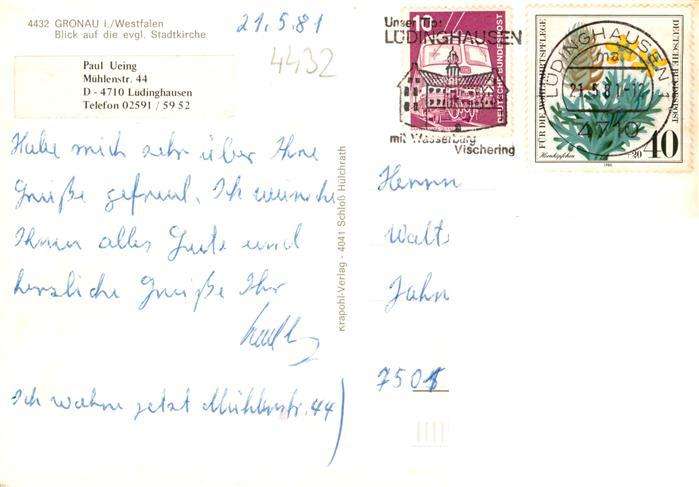 4432 GRONAU i./Westfalen
Blick auf die evgl. Stadtkirche
21.5.81
4432
Paul Ueing
Mühlenstr. 44
D - 4710 Lüdinghausen
Telefon 02591 / 59 52
Habe mich sehr über Ihre
Grüße gefreut. Ich wünsche
Ihnen alles Gute und
herzliche Grüße Ihr
Ich wohne jetzt Mühlenstr. 44
Krapohl-Verlag - 4041 Schloß Hülchrath
Unser Tip:
LÜDINGHAUSEN
mit Wasserburg
Vischering
DEUTSCHE BUNDESPOST
LÜDINGHAUSEN 1
ma
21.5.81-12
4710
FÜR DIE WOHLFAHRTSPFLEGE
DEUTSCHE BUNDESPOST
+20 40
1980
Herrn
Jahn